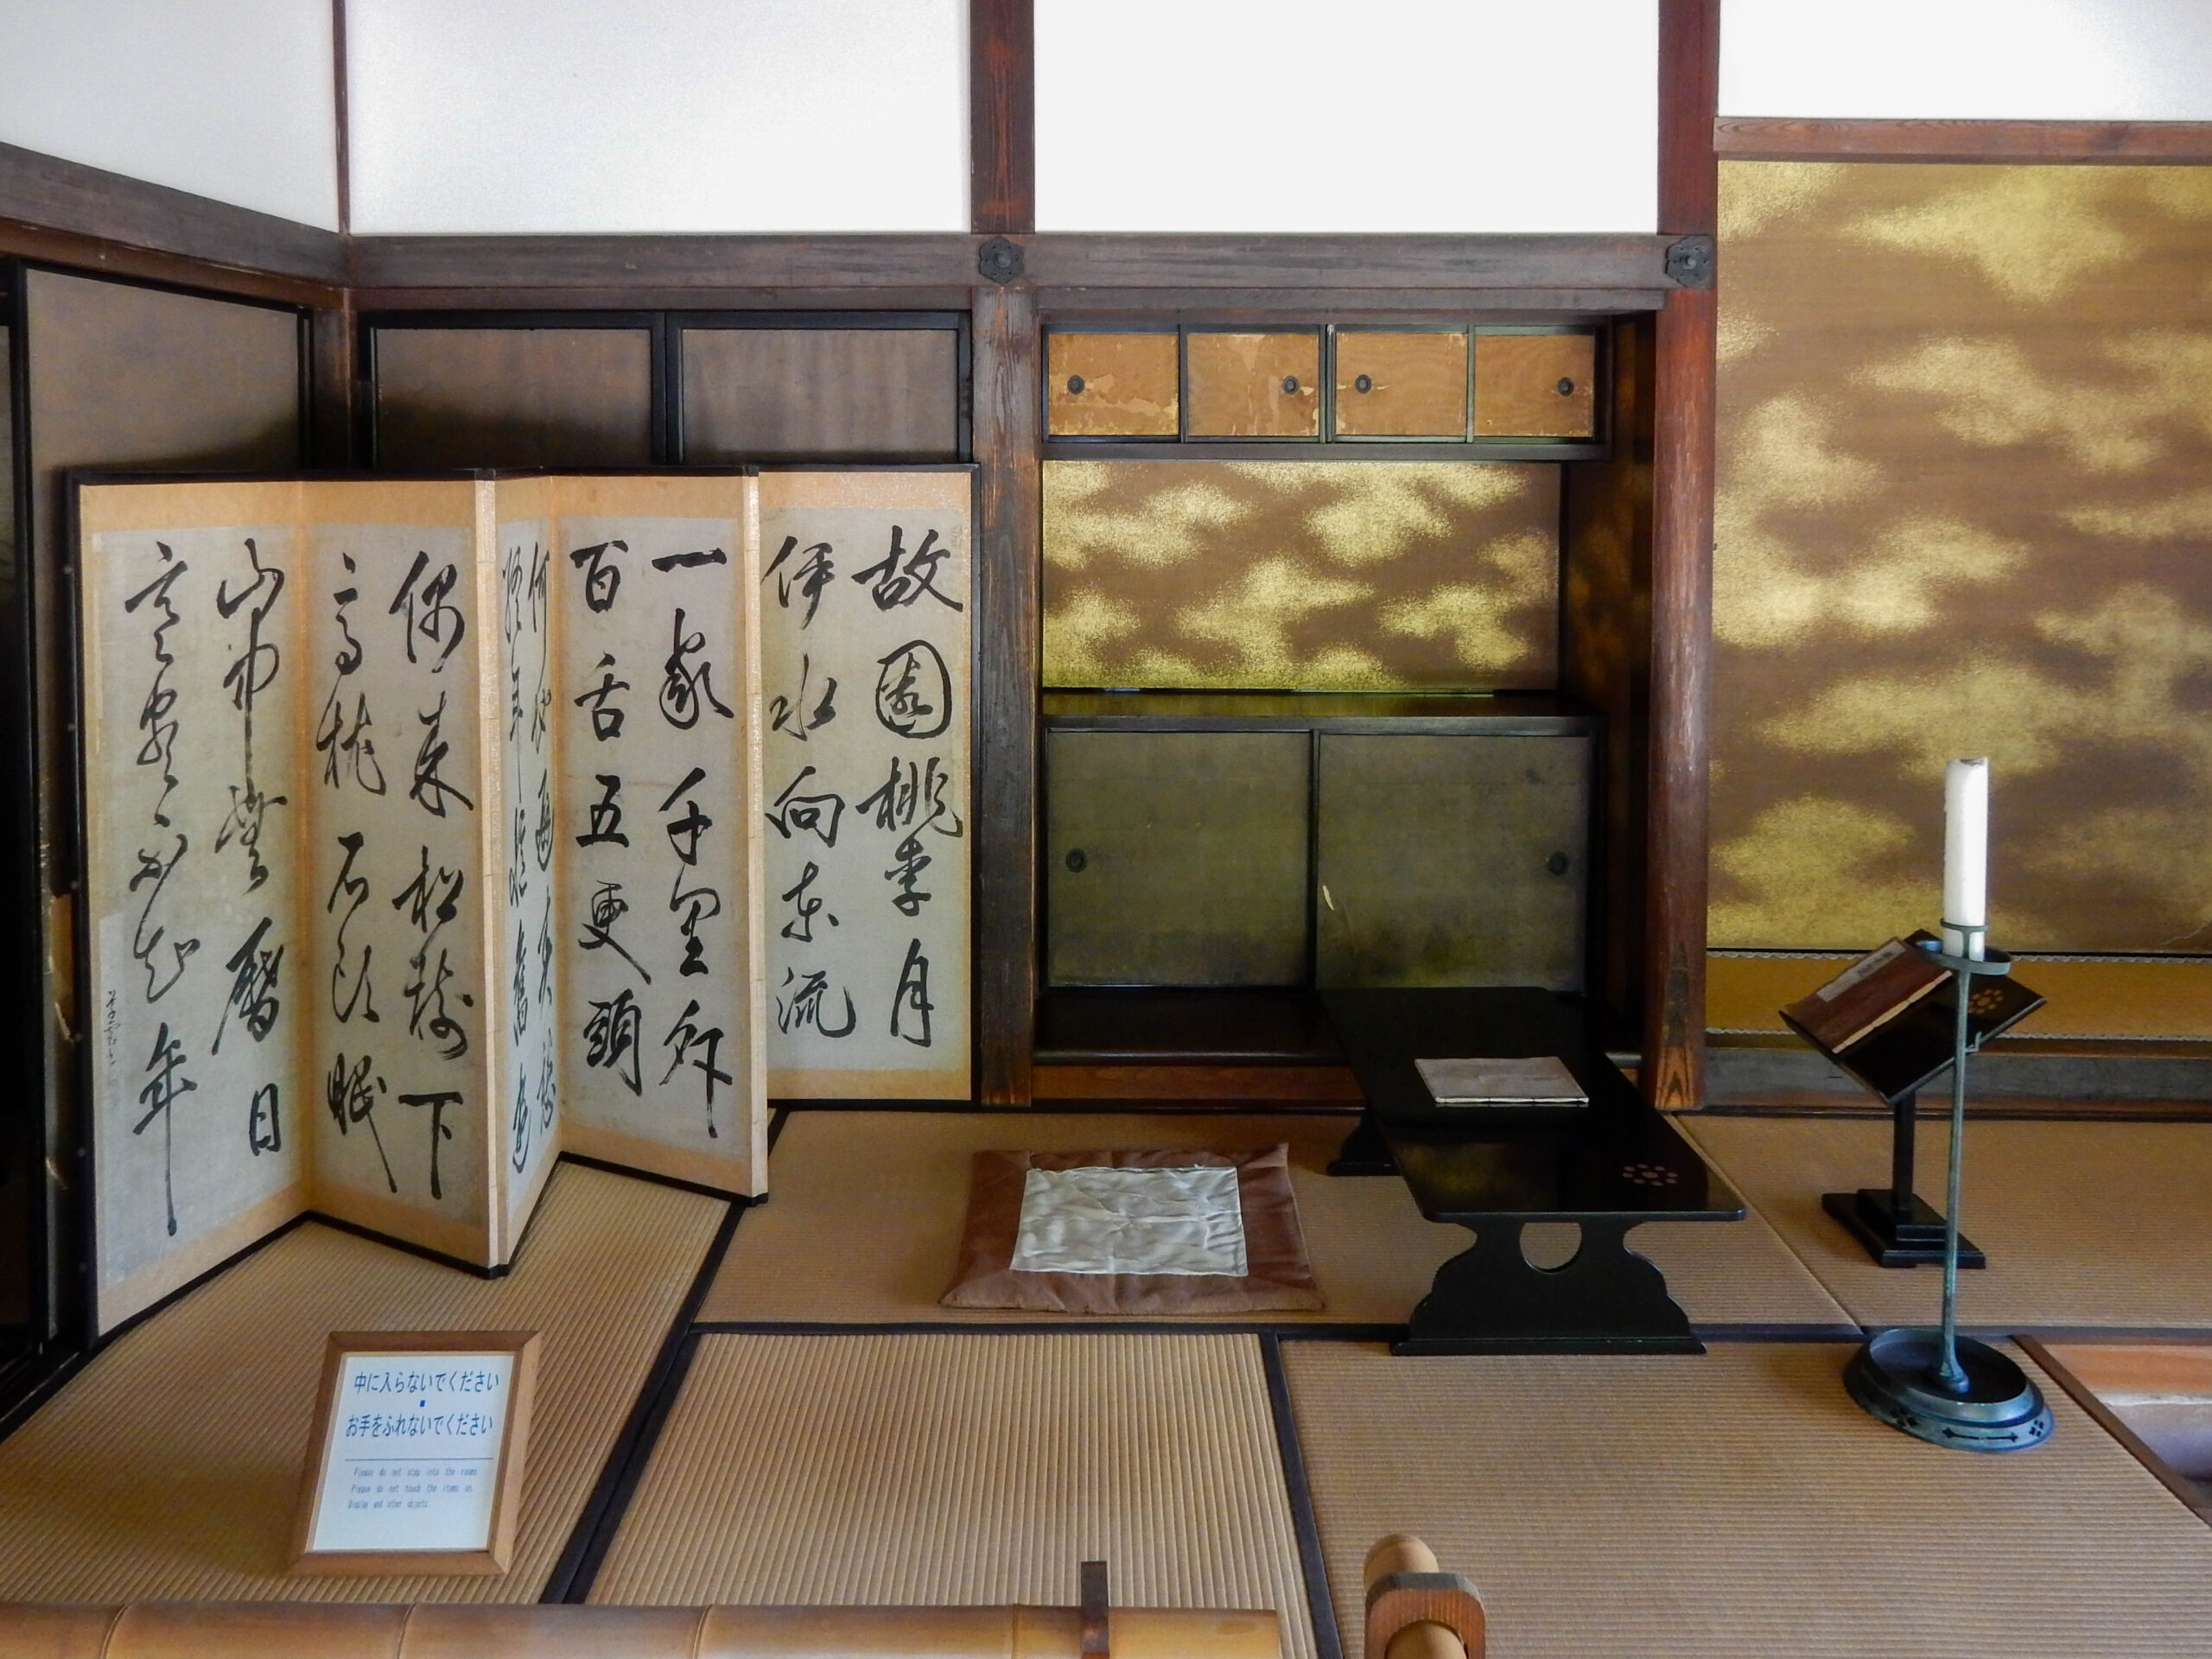 故園桃李月
伊水向東流
一家千里外
百舌五更頭
偶来松樹下
高枕石頭眠
山中無暦日
寒尽不知年
中に入らないでください
・
お手をふれないでください
Please do not step into the rooms
Please do not touch the items on
Display and other objects.